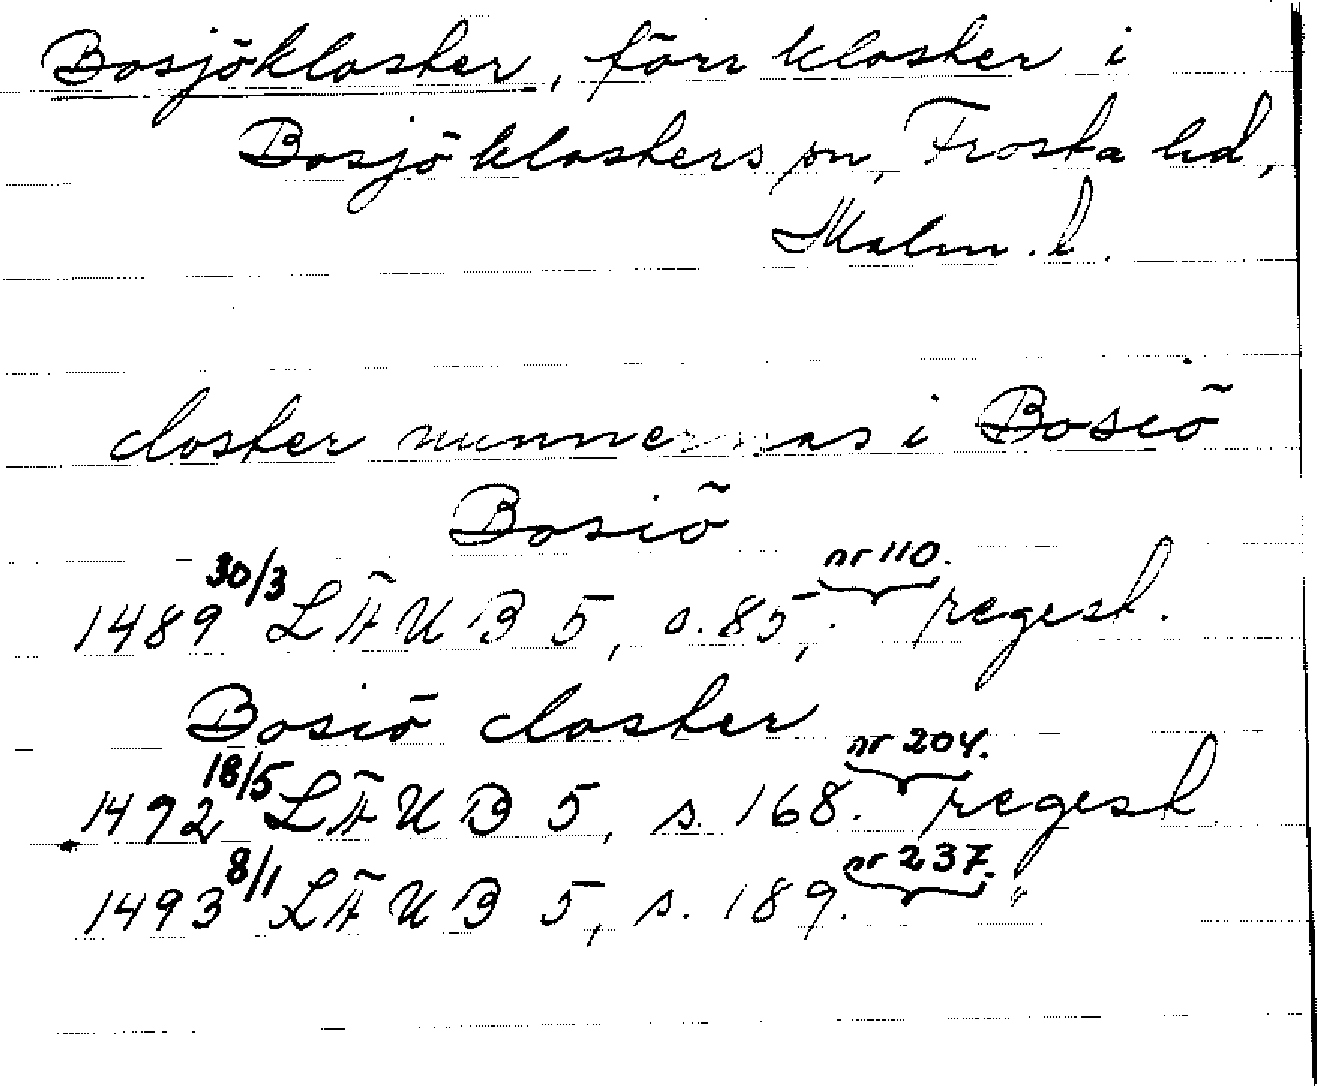 Bosjökloster, förr kloster i
Bosjöklosters sn, Frosta hd,
Malm. l.
closter nunnernas i Bosiö
Bosiö
1489 30/3 LÄUB 5, s. 85, nr 110. regest.
Bosiö closter
1492 18/5 LÄUB 5, s. 168. nr 204. regest
1493 8/1 LÄUB 5, s. 189. nr 237. "